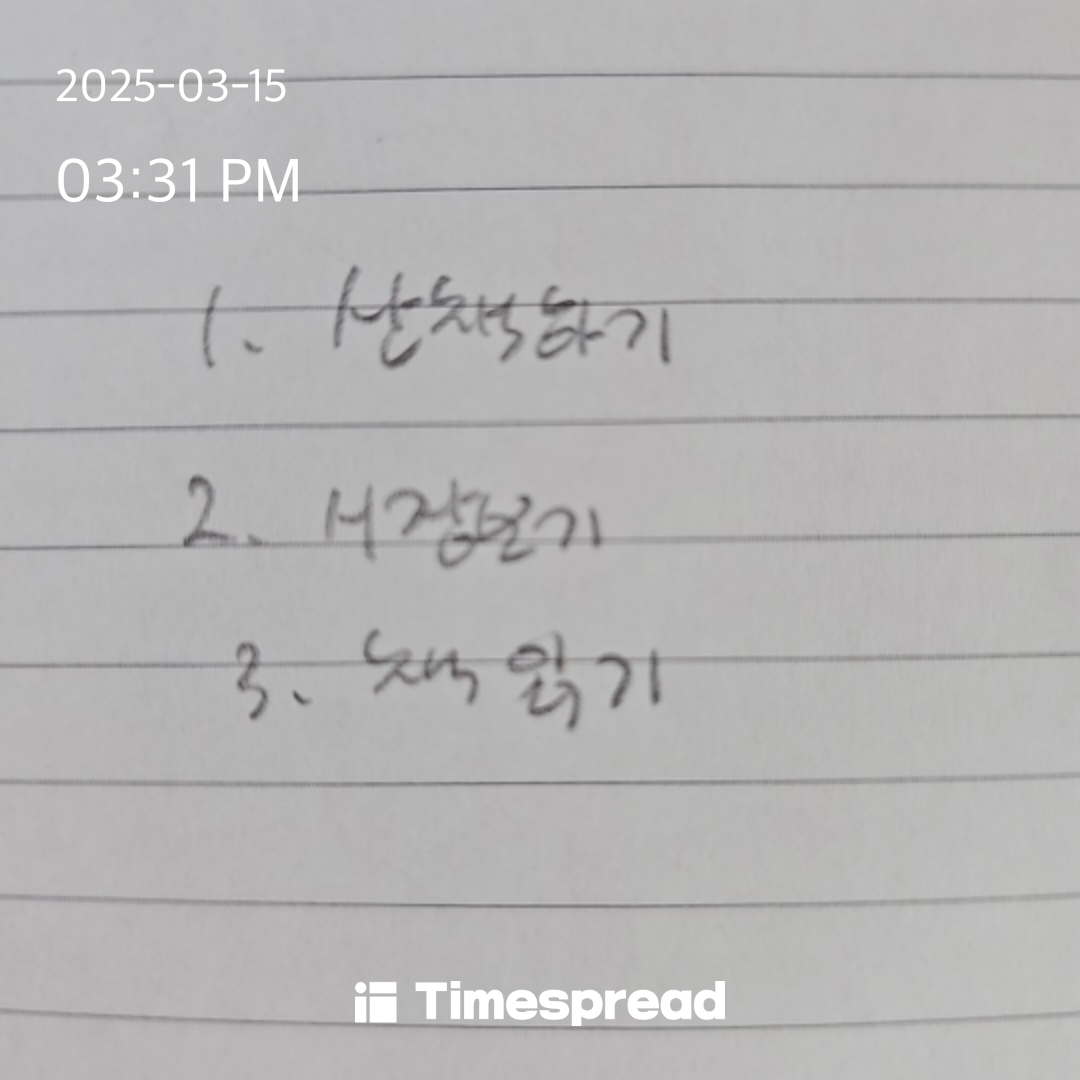 2025-03-15
03:31 PM
1. 산책하기
2. 시장보기
3. 책 읽기
Timespread